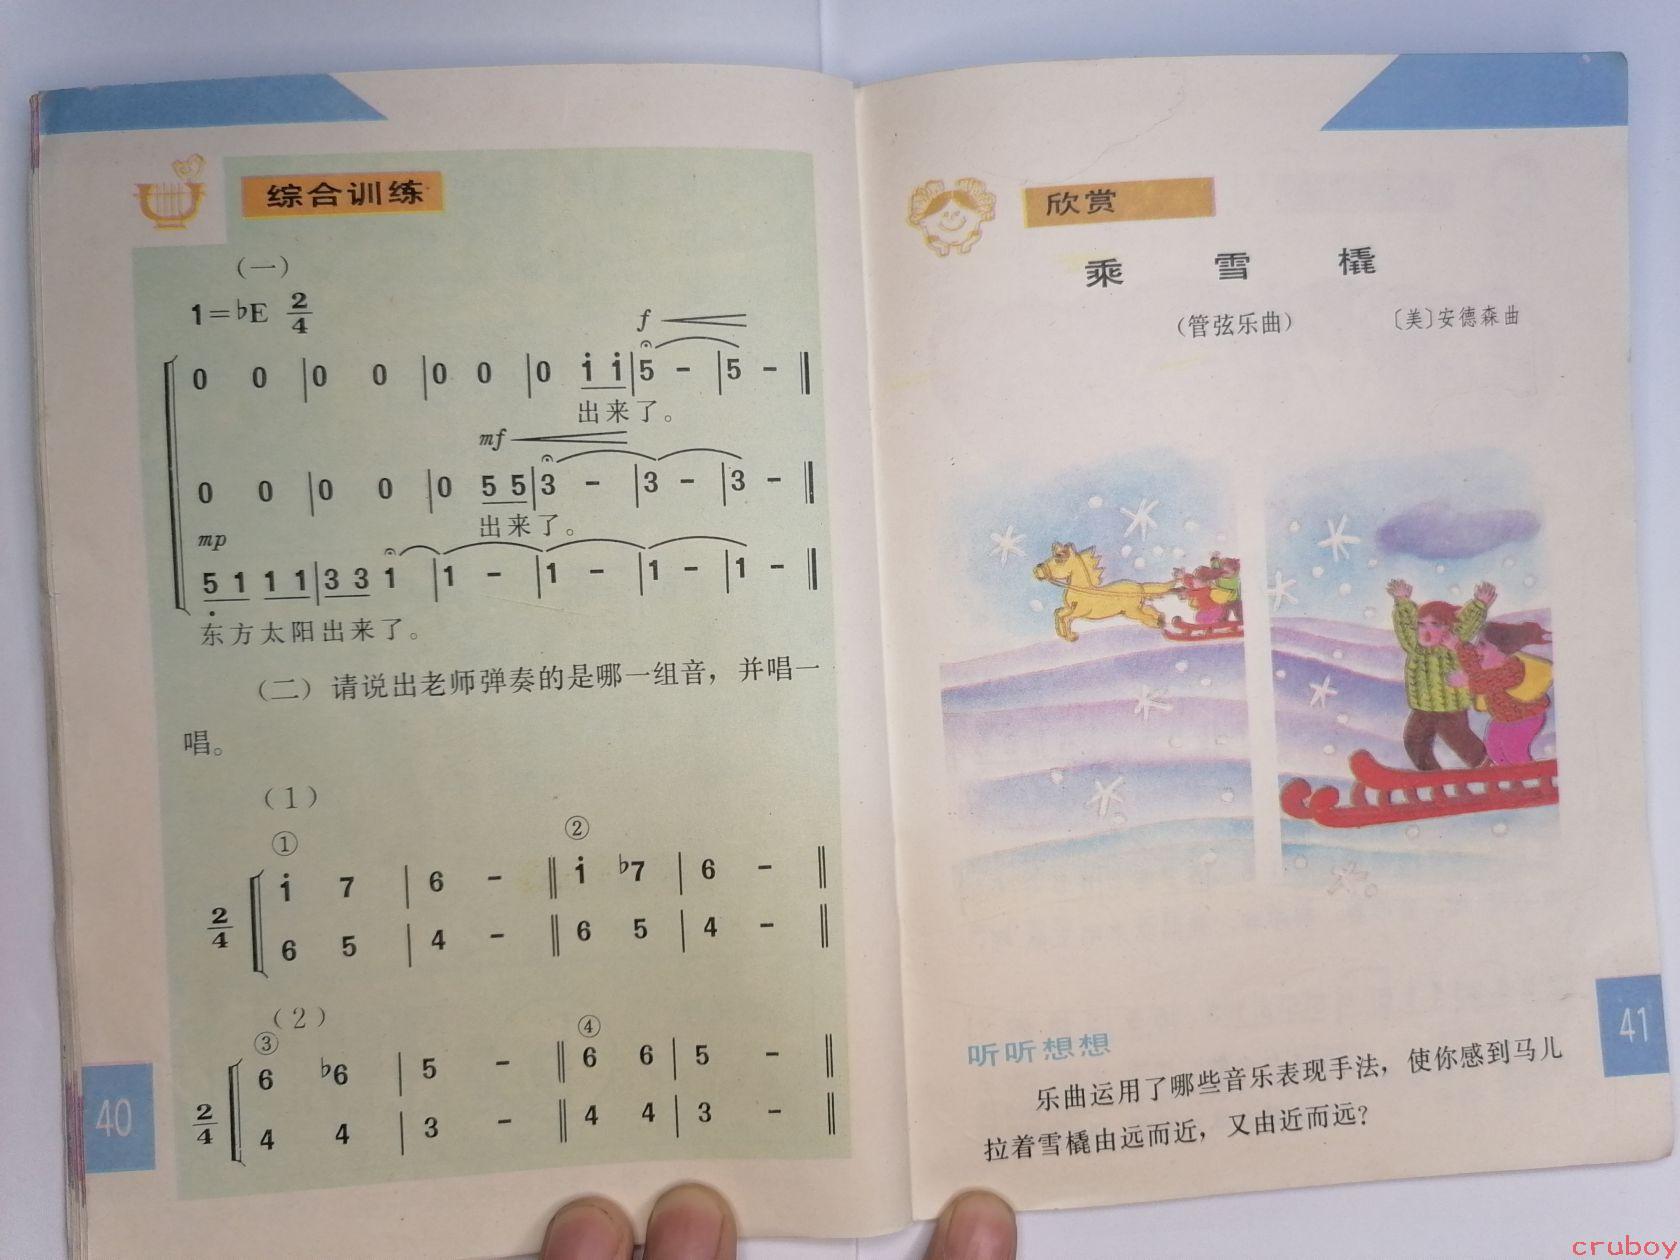 综合训练
（一）
1=♭E 2/4
f
0 0 | 0 0 | 0 0 | 0 i̇ i̇ | 5 - | 5 - ‖
出来了。
mf
0 0 | 0 0 | 0 5 5 | 3 - | 3 - | 3 - ‖
出来了。
mp
5̣ 1 1 1 | 3 3 1 | 1 - | 1 - | 1 - | 1 - ‖
东方太阳出来了。
（二）请说出老师弹奏的是哪一组音，并唱一
唱。
（1）
① ②
2/4
i̇ 7 | 6 - ‖ i̇ ♭7 | 6 - ‖
6 5 | 4 - ‖ 6 5 | 4 - ‖
（2）
③ ④
2/4
6 ♭6 | 5 - ‖ 6 6 | 5 - ‖
4 4 | 3 - ‖ 4 4 | 3 - ‖
40
欣赏
乘雪橇
（管弦乐曲） 〔美〕安德森曲
听听想想
乐曲运用了哪些音乐表现手法，使你感到马儿
拉着雪橇由远而近，又由近而远？
41
cruboy